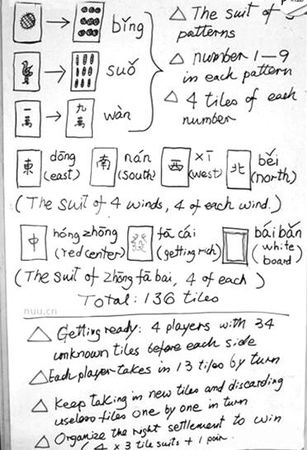 bǐng
suǒ
一萬 九萬 wàn
△ The suit of patterns
△ number 1–9 in each pattern
△ 4 tiles of each number
東 dōng (east) 南 nán (south) 西 xī (west) 北 běi (north)
(The suit of 4 winds, 4 of each wind.)
中 hóng zhōng (red center) 發 fā cái (getting rich) bái bǎn (white board)
(The suit of zhōng fā bái, 4 of each)
Total: 136 tiles
nuu.cn
△ Getting ready: 4 players with 34
unknown tiles before each side
△ Each player takes in 13 tiles by turn
△ Keep taking in new tiles and discarding
useless tiles one by one in turn
△ Organize the right settlement to win
(4 x 3 tile suits + 1 pair